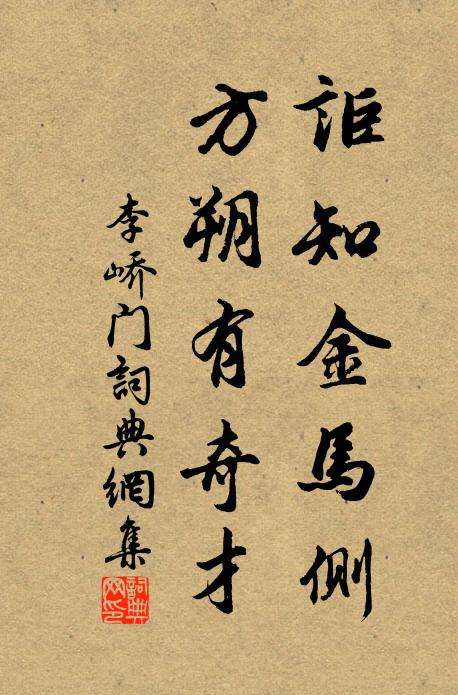 詎知金馬側
方朔有奇才
李峤门詞典網集
詞典网印